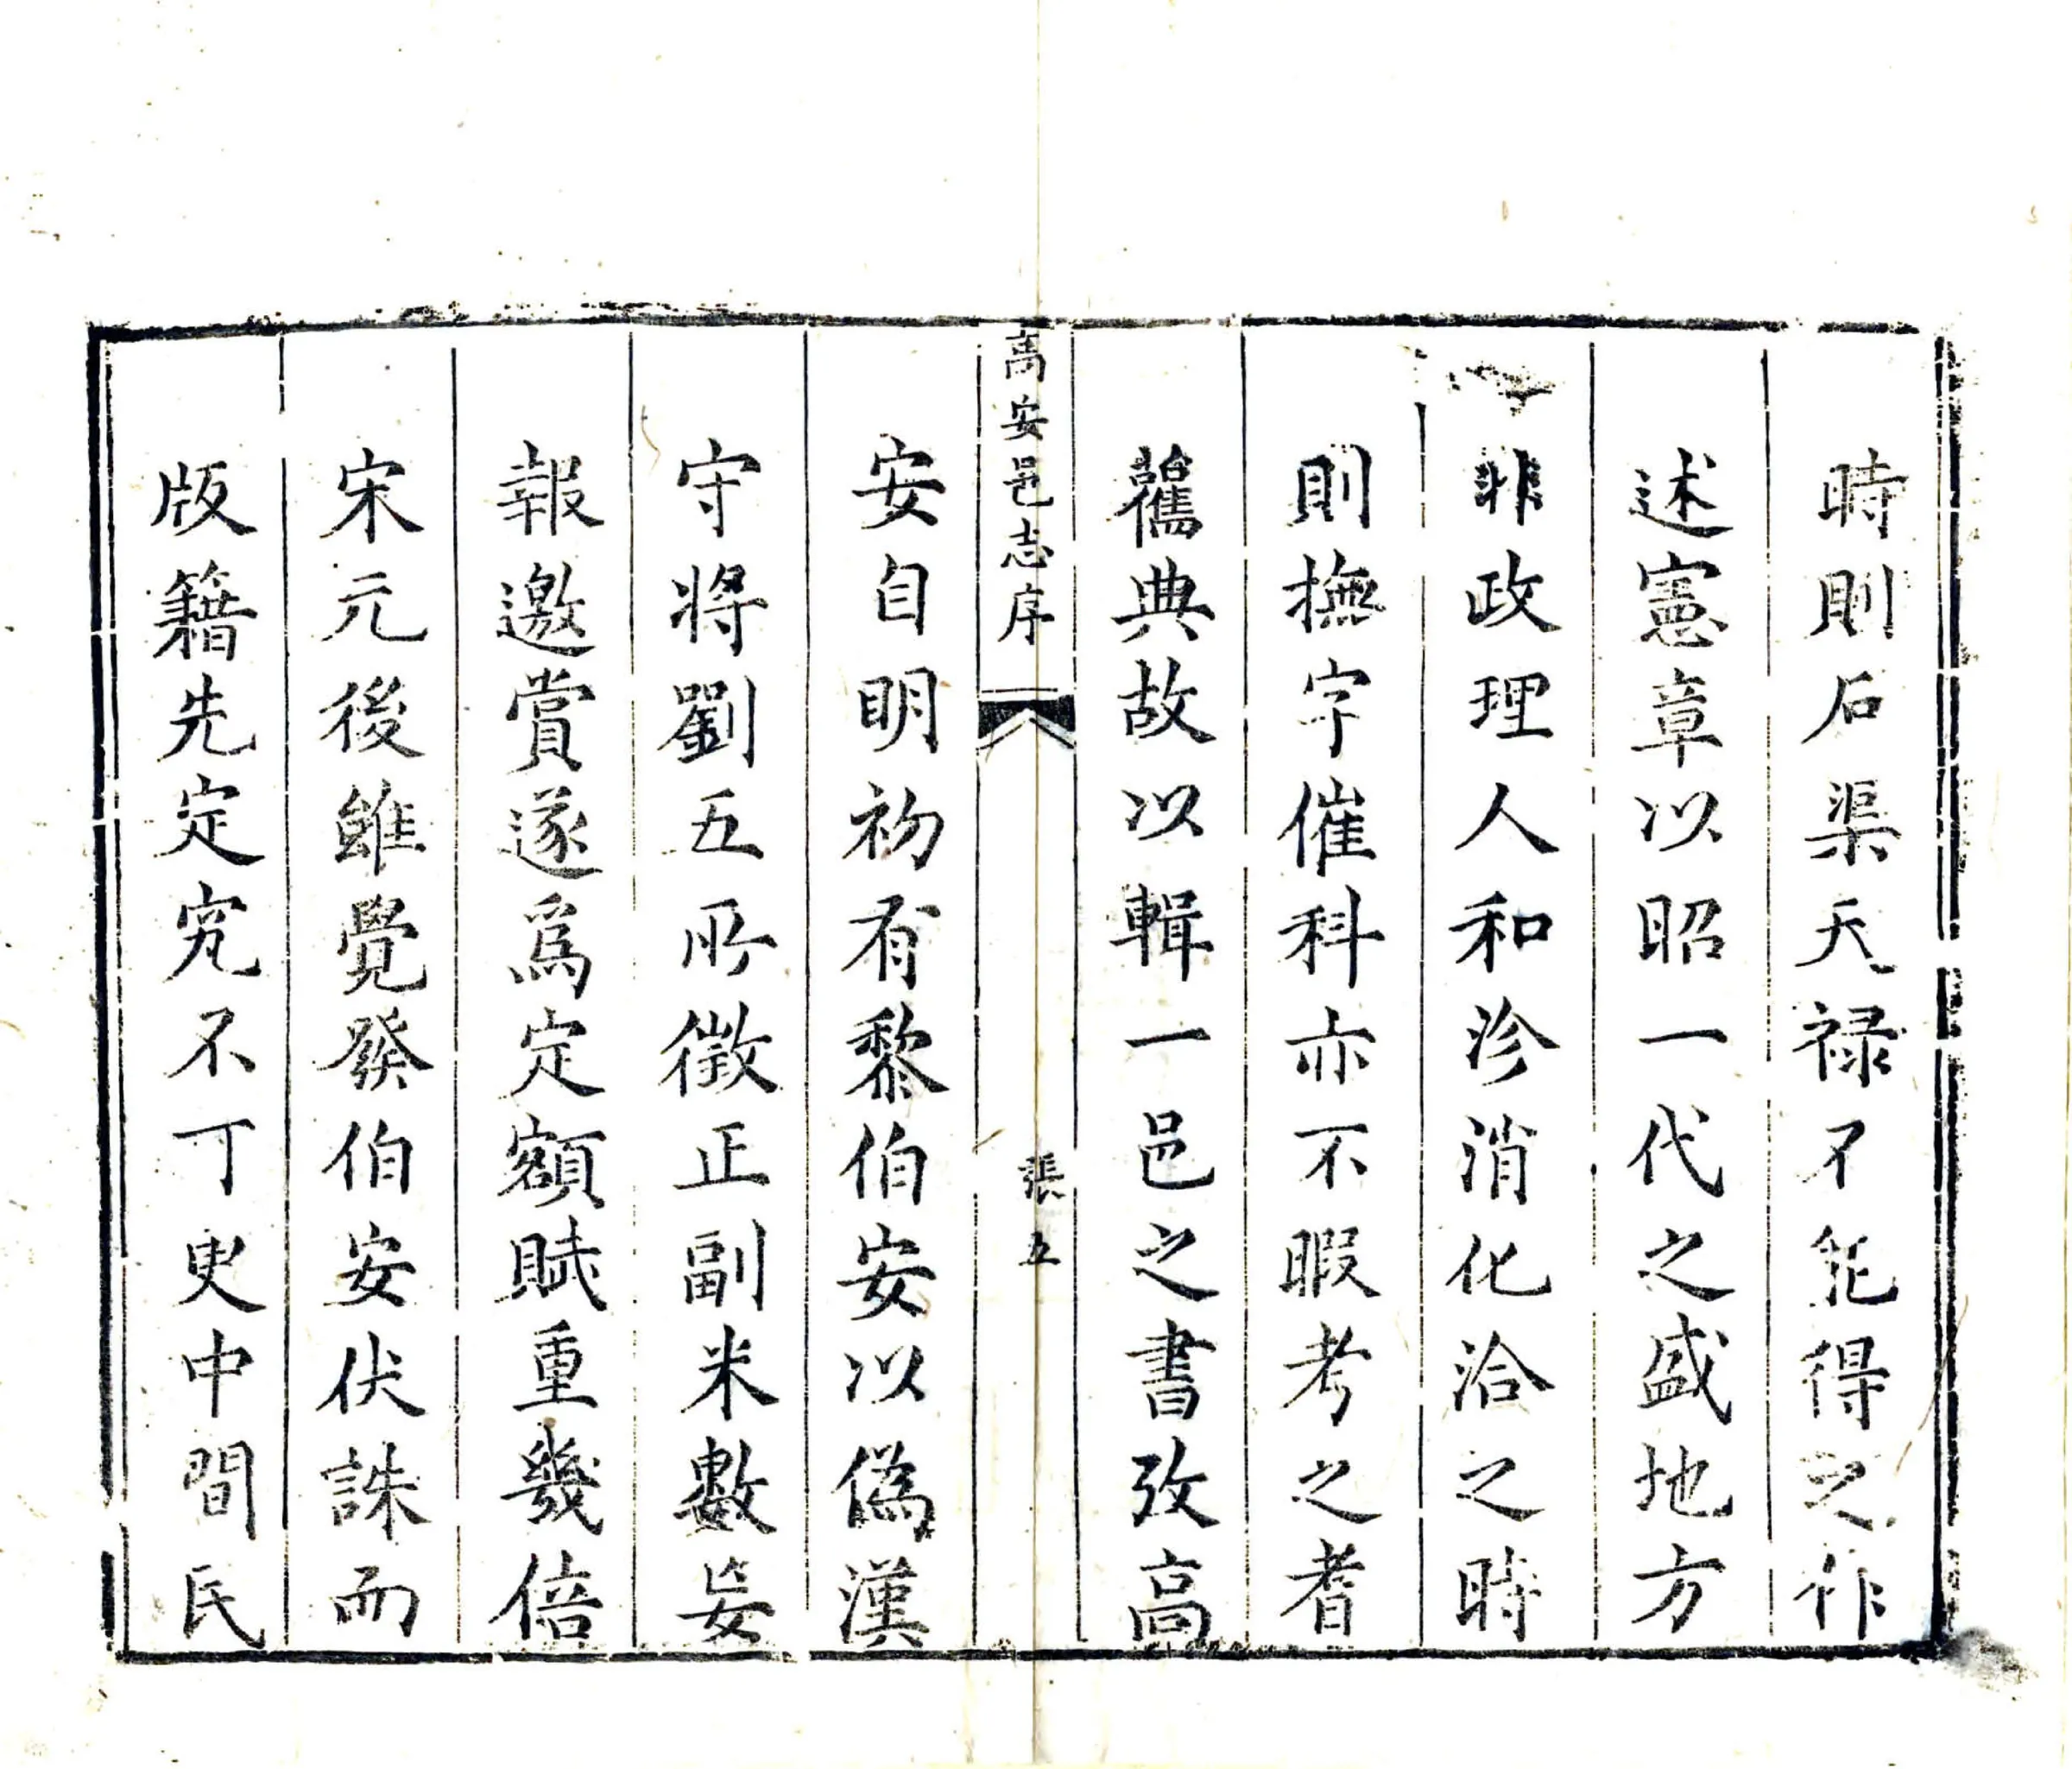 時則石渠天禄不能得之作
述憲章以昭一代之盛地方
非政理人和沴消化洽之時
則撫字催科亦不暇考之耆
舊典故以輯一邑之書攷高
高安邑志序
張五
安自明初有黎伯安以僞漢
守將劉五所徵正副米數妄
報邀賞遂爲定額賦重幾倍
宋元後雖覺發伯安伏誅而
版籍先定究不可更中間民